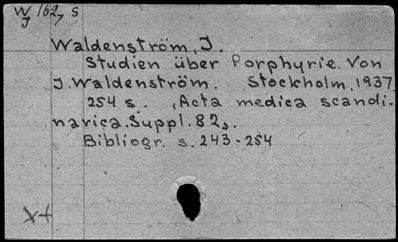 W 162, S
J
Waldenström, J.
Studien über Porphyrie. Von
J. Waldenström. Stockholm, 1937.
254 s. (Acta medica scandi-
navica. Suppl. 82).
Bibliogr. s. 243-254